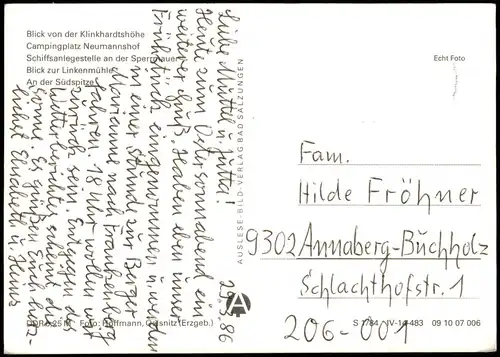 Blick von der Klinkhardtshöhe
Campingplatz Neumannshof
Schiffsanlegestelle an der Sperrmauer
Blick zur Linkenmühle
An der Südspitze
Echt Foto
29.3.86
Liebe Mutti u. Jutta!
Heute zum Ostersonnabend ein
weiterer Gruß. Haben eben unser
Frühstück eingenommen u. wollen
in einer Stunde zur Berger
Marianne nach Frankenberg
fahren. 18 Uhr wollen wir
zurück sein. Entgegen des
Wetterberichtes scheint die
Sonne. Es grüßen Euch herz-
lichst Elisabeth u. Heinz
AUSLESE-BILD-VERLAG BAD SALZUNGEN
Fam.
Hilde Fröhner
9302 Annaberg-Buchholz
Schlachthofstr. 1
206-001
A
DDR 0,25 M Foto: Hoffmann, (Erzgeb.)
S 1784 IV-14-483 09 10 07 006